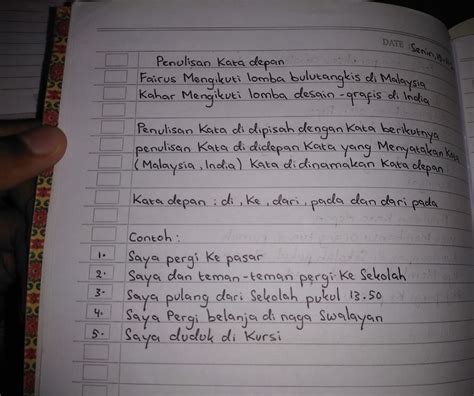 DATE : Senin,
Penulisan Kata depan
Fairus Mengikuti lomba bulutangkis di Malaysia
Kahar Mengikuti lomba desain - grafis di India
Penulisan Kata di dipisah dengan Kata berikutnya
penulisan Kata di didepan Kata yang Menyatakan Kata
(Malaysia, India) Kata di dinamakan Kata depan
Kata depan : di, Ke, dari, pada dan dari pada
Contoh :
1. Saya pergi Ke pasar
2. Saya dan teman-teman pergi Ke Sekolah
3. Saya pulang dari Sekolah pukul 13.50
4. Saya Pergi belanja di naga Swalayan
5. Saya duduk di Kursi